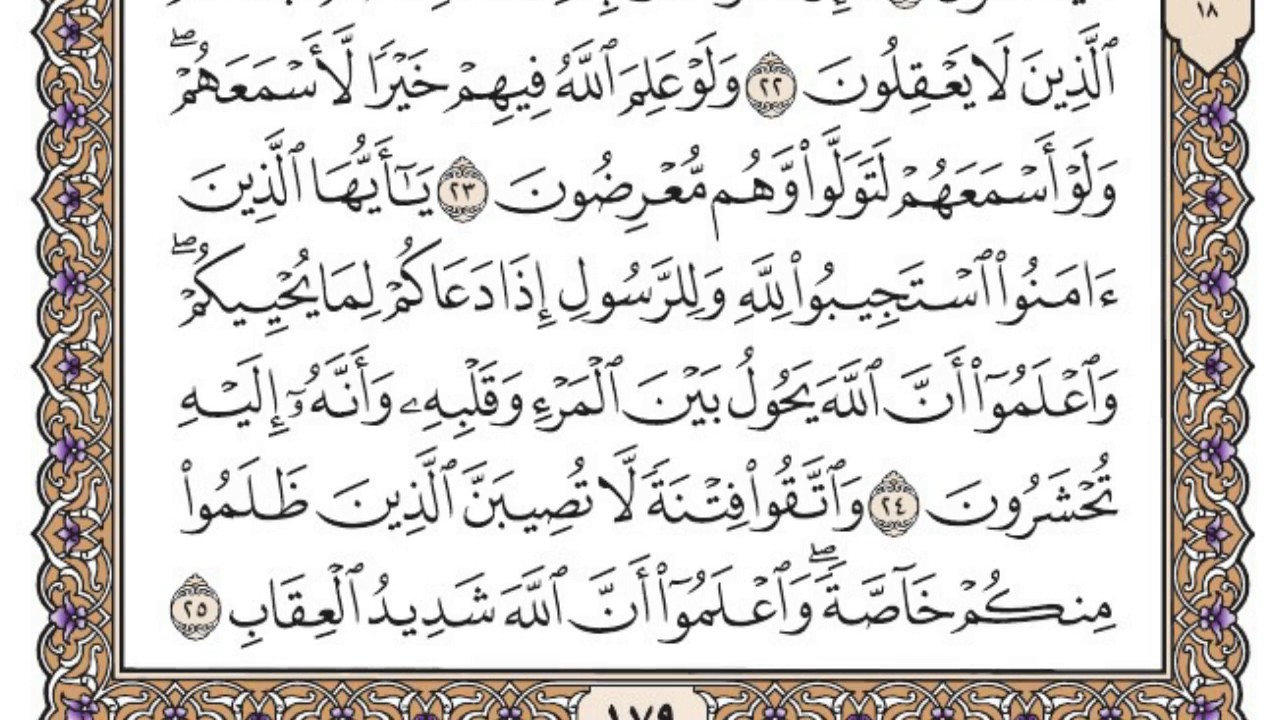 ١٨
ٱلَّذِينَ لَا يَعْقِلُونَ ٢٢ وَلَوْ عَلِمَ ٱللَّهُ فِيهِمْ خَيْرًا لَّأَسْمَعَهُمْۖ
وَلَوْ أَسْمَعَهُمْ لَتَوَلَّوا۟ وَّهُم مُّعْرِضُونَ ٢٣ يَـٰٓأَيُّهَا ٱلَّذِينَ
ءَامَنُوا۟ ٱسْتَجِيبُوا۟ لِلَّهِ وَلِلرَّسُولِ إِذَا دَعَاكُمْ لِمَا يُحْيِيكُمْۖ
وَٱعْلَمُوٓا۟ أَنَّ ٱللَّهَ يَحُولُ بَيْنَ ٱلْمَرْءِ وَقَلْبِهِۦ وَأَنَّهُۥٓ إِلَيْهِ
تُحْشَرُونَ ٢٤ وَٱتَّقُوا۟ فِتْنَةً لَّا تُصِيبَنَّ ٱلَّذِينَ ظَلَمُوا۟
مِنكُمْ خَآصَّةًۖ وَٱعْلَمُوٓا۟ أَنَّ ٱللَّهَ شَدِيدُ ٱلْعِقَابِ ٢٥
١٧٩